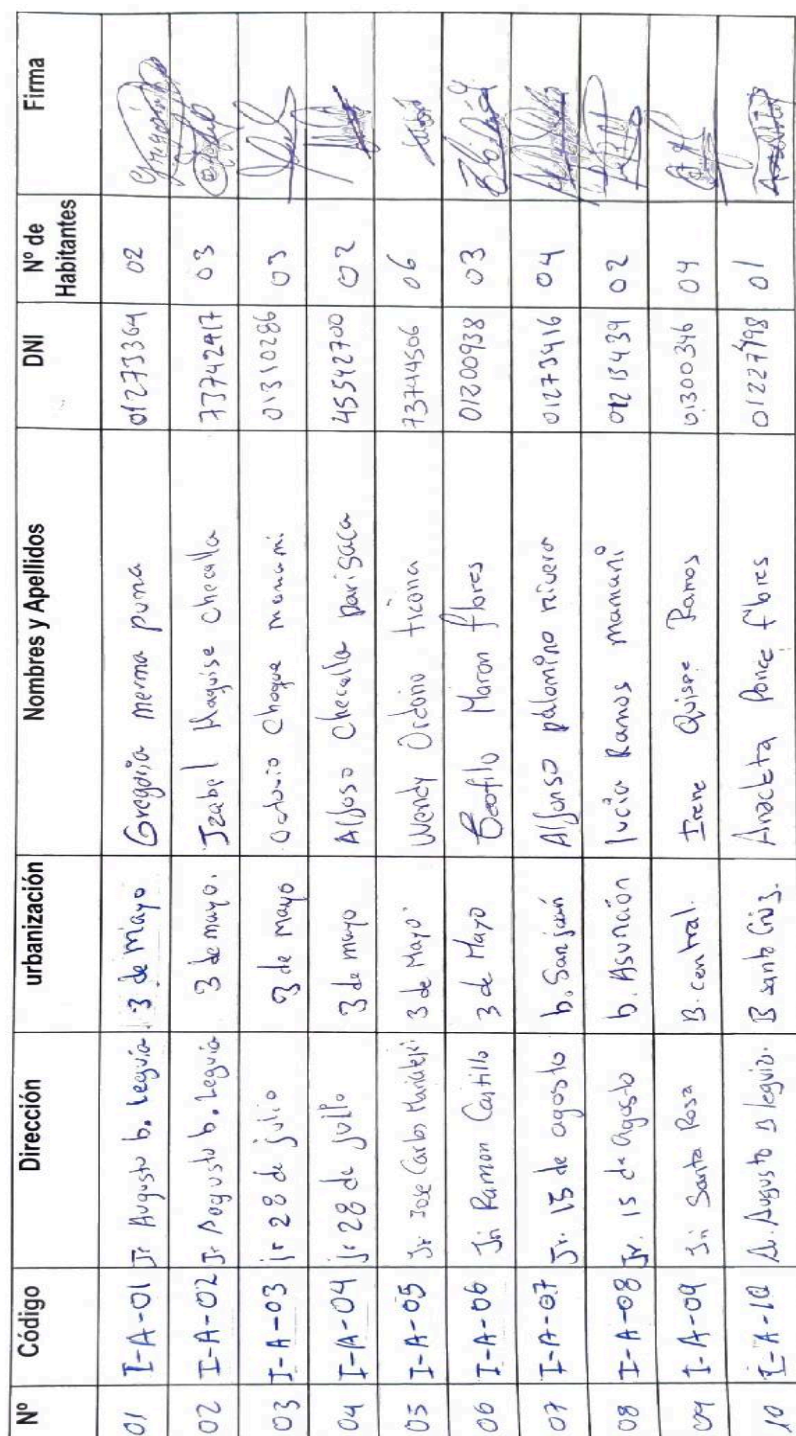 Nº Código Dirección urbanización Nombres y Apellidos DNI Nº de Habitantes Firma
01 I-A-01 Jr Augusto b. Leguía 3 de mayo Gregoria merma puma 01273364 02 Gregoria
02 I-A-02 Jr Augusto b. Leguia 3 de mayo. Izabel Haquise checalla 73742417 03
03 I-A-03 jr 28 de julio 3 de mayo Octavio Choque mamami 01310286 03
04 I-A-04 jr 28 de julio 3 de mayo Alfoso checalla parisaca 45542700 02
05 I-A-05 Jr. Jose Carlos 3 de Mayo Wendy Ordoño ticona 73744506 06
06 I-A-06 Jr. Ramon Castillo 3 de Mayo Teofilo Maron flores 01200938 03
07 I-A-07 Jr. 15 de agosto b. San juan Alfonso palomino rivera 01273416 04
08 I-A-08 Jr. 15 de Agosto b. Asunción lucia Ramos mamani 01213439 02
09 I-A-09 Jr. Santa Rosa B. central. Irene Quispe Ramos 01300346 04
10 I-A-10 Av. Augusto B leguia. B santa Cruz. Anacleta Ponce flores 01227498 01